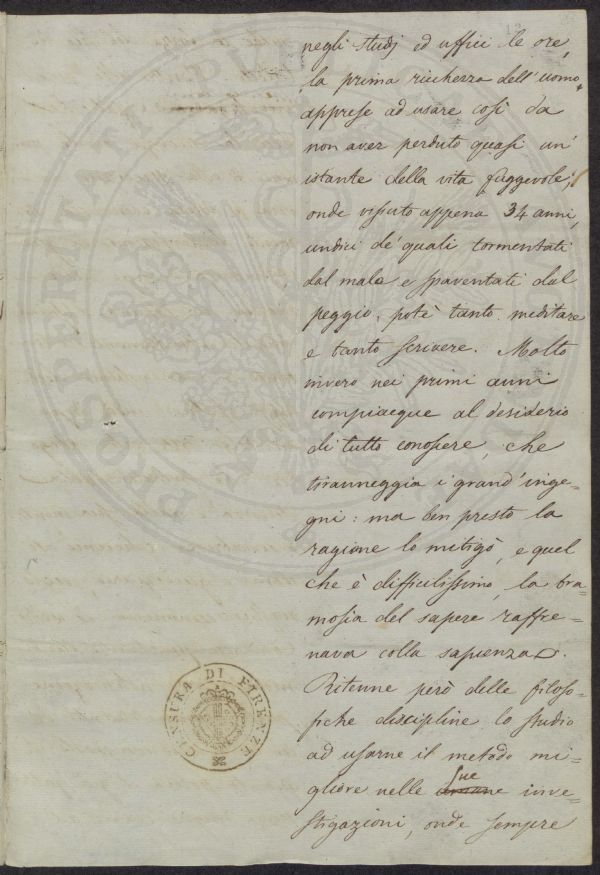 negli studj ed uffici le ore,
la prima ricchezza dell'uomo,
apprese ad usare così da
non aver perduto quasi un'
istante della vita fuggevole;
onde vissuto appena 34 anni,
undici de' quali tormentati
dal male e spaventati dal
peggio, potè tanto meditare
e tanto scrivere. Molto
invero nei primi anni
compiacque al desiderio
di tutto conoscere, che
tiranneggia i grand'inge=
gni: ma ben presto la
ragione lo mitigò, e quel
che è difficilissimo, la bra=
mosia del sapere raffre=
nava colla sapienza.
Ritenne però delle filoso=
fiche discipline lo studio
ad usarne il metodo mi=
gliore nelle sue inve=
stigazioni, onde sempre
CENSURA DI FIRENZE
PROSPERITATI